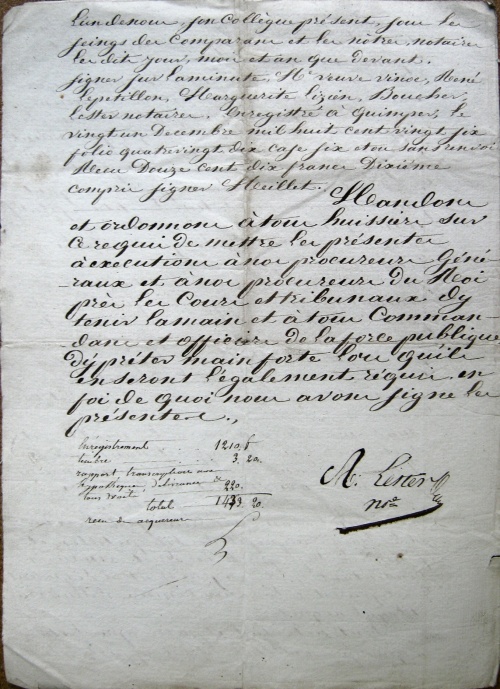 Landenou, son Collègue présent, sous les
seings des Comparans et les nôtres, notaires
les dits jour, mois et an que devant.
signés sur la minute, Me veuve vinoc, René
Lyntillon, Marguerite Lizien, Boucher,
Lester notaires. Enregistré à Quimper, le
vingt un Decembre mil huit cent vingt six
folio quatrevingt dix case six et ou sans renvoi
Reçu Douze cent dix francs Dixième
compris signer Meillet.
Mandons
et ordonnons à tous huissiers sur
ce requis de mettre les présentes
à execution à nos procureurs Géné-
-raux et à nos procureurs du Roi
près les Cours et tribunaux d'y
tenir la main et à tous Comman-
-dans et officiers de la force publique
d'y prêter main forte lorsqu'ils
en seront légalement réquis. en
foi de quoi nous avons signé les
présentes.,
Enregistrement 1210. f
timbre 3. 20.
rapport, transcription aux
hypothèques, délivrance &
tous droits, 220.
total 1433. 20.
recu du acquereur
A. Lester
nre